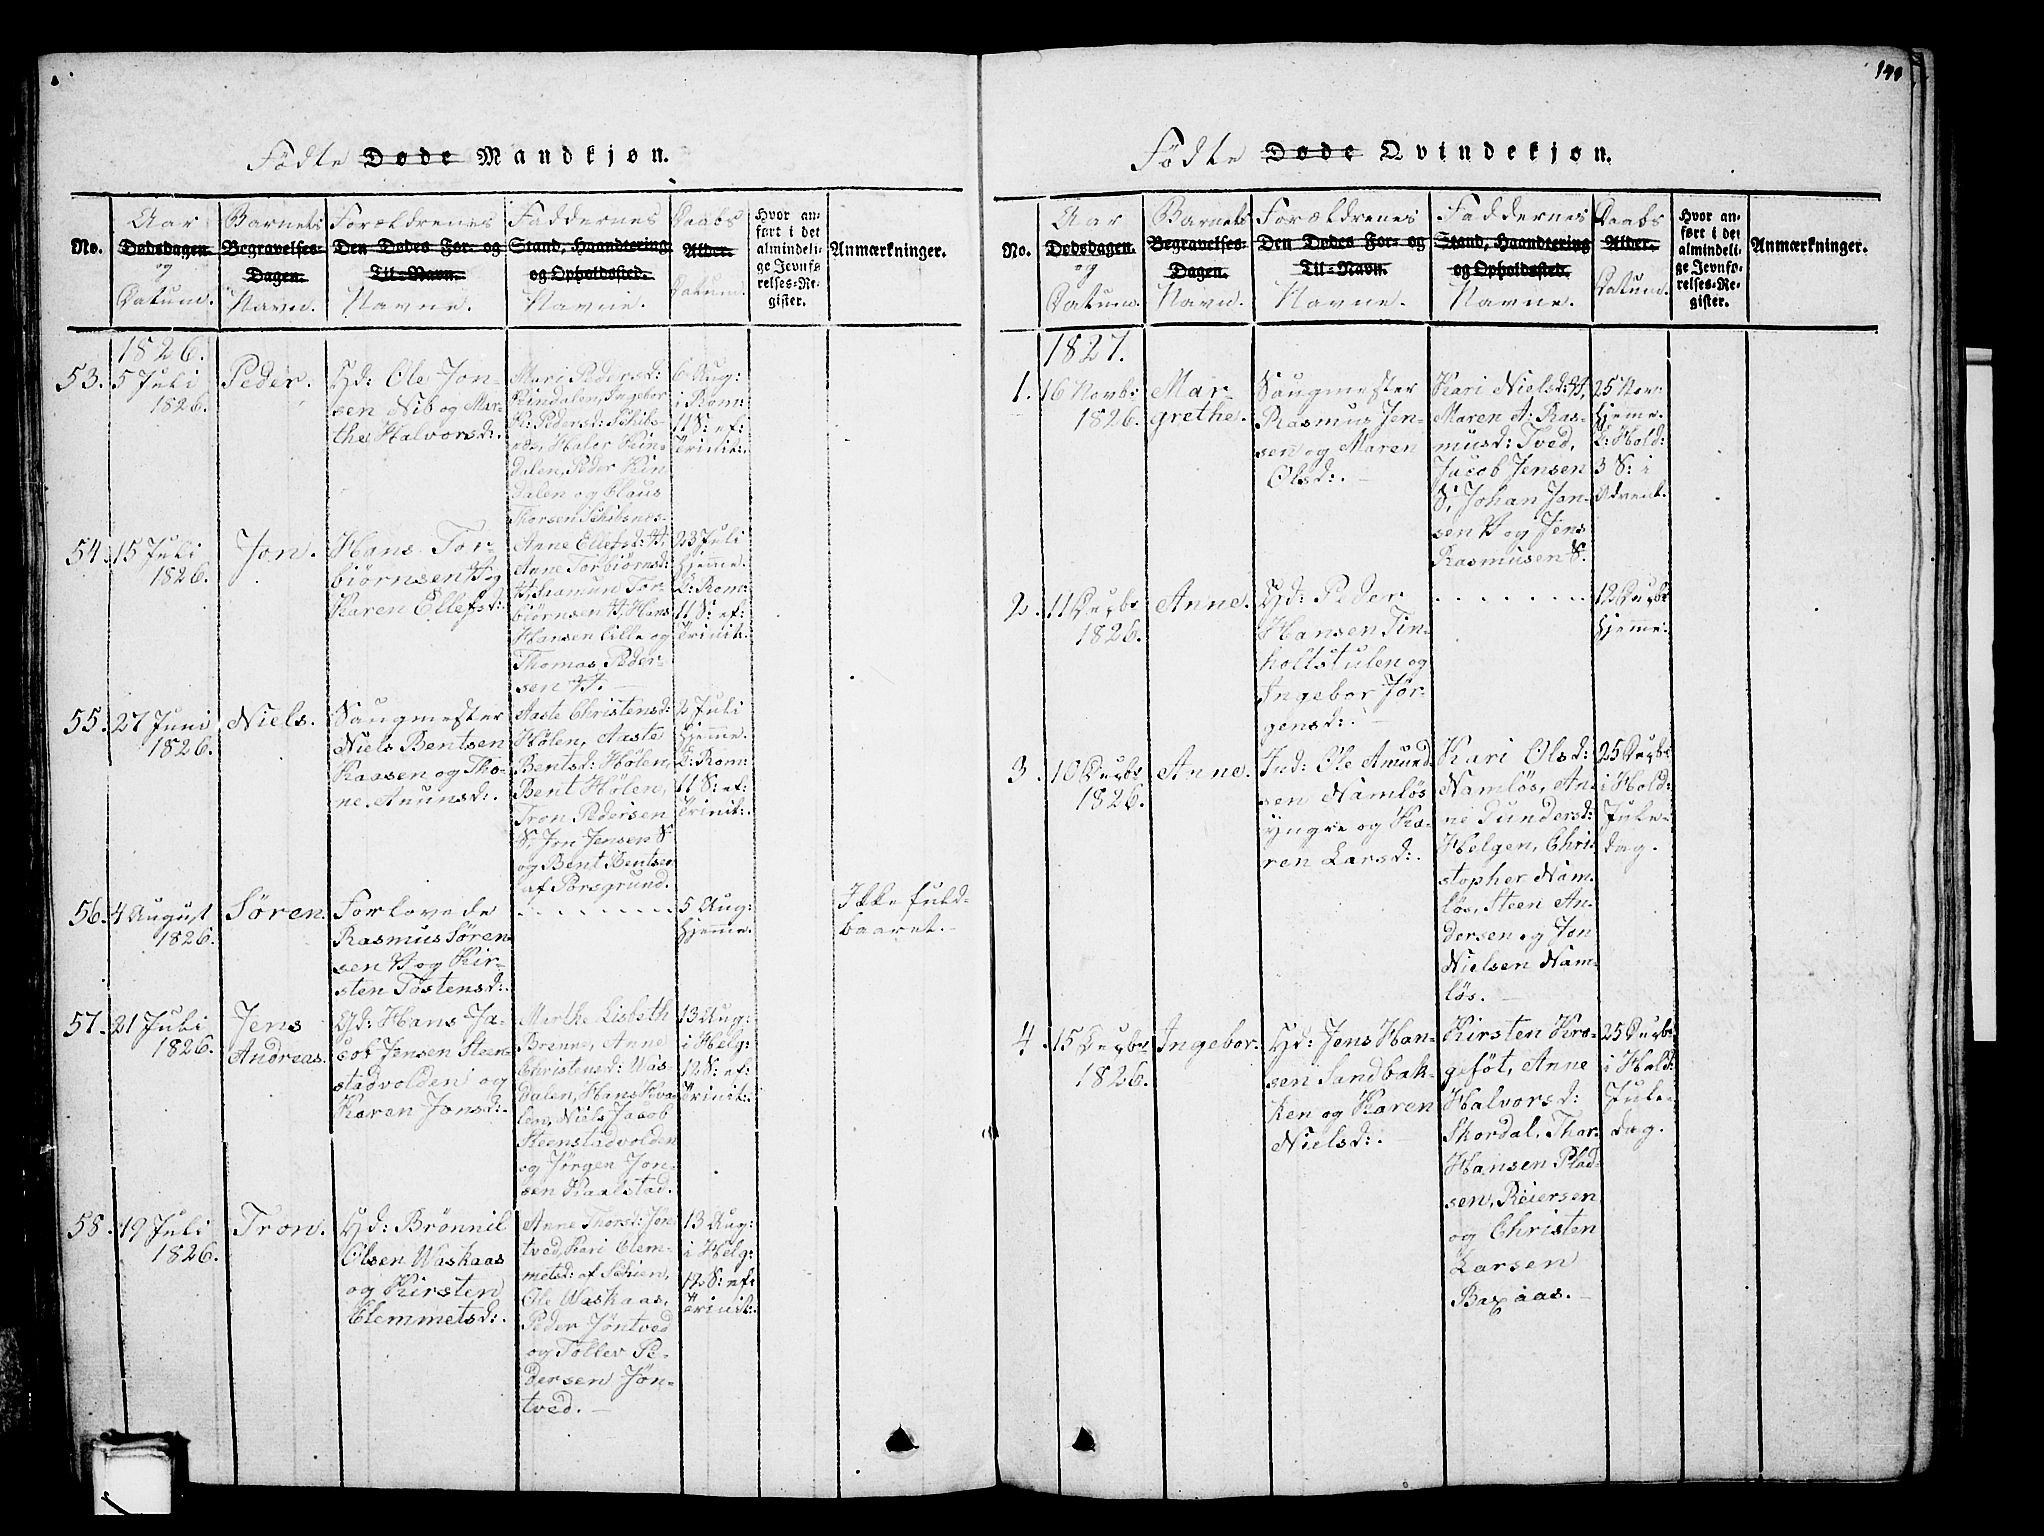 Fødte Døde Mandkjøn.
No.
Aar
Dødsdagen.
og
Datum.
Barnets
Begravelses-
Dagen.
Navn.
Forældrenes
Den Dødes For- og
Til-Navn.
Navne.
Faddernes
Stand, Haandtering
og Opholdssted.
Navne.
Daabs
Alder.
Datum.
Hvor an-
ført i det
almindeli-
ge Jevnfø-
relses-Re-
gister.
Anmærkninger.
1826.
53.
5 Juli
1826.
Peder.
Gd: Ole Jon-
sen Nib og Mar-
the Halvorsd:.
Mari Pedersd:
Kindalen, Ingebor
Pedersd: Skibs-
næs, Halvor Kin-
dalen, Peder Kin
dalen og Claus
Thorsen Skibsnæs.
6 Aug:
i Rom:
11 S: ef:
Trinit:.
54.
15 Juli
1826.
Jon.
Hans Tor-
biørnsen H og
Karen Ellefsd:.
Anne Ellefsd: H,
Anne Torbiørnsd:
H, Amun Tor-
biørnsen H, Hans
Hansen Lille og
Thomas Peder-
sen H.
23 Juli
hjemme.
D: Rom:
11 S: ef:
Trinit:.
55.
27 Juni
1826.
Niels.
Saugmester
Niels Bentsen
Kaasen og Tho-
ne Amunsd:.
Aaste Christensd:
Hølen, Aaste
Bentsd: Hølen,
Bent Hølen,
Tron Pedersen
S, Jon Jensen S
og Bent Bentsen
af Porsgrund.
2 Juli
hjemme.
D: Rom:
11 S: ef:
Trinit:.
56.
4 August
1826.
Søren.
Forlovede
Rasmus Søren-
sen H og Kir-
sten Tostensd:.
5 Aug:
hjemme.
Ikke fuld-
baaret.
57.
21 Juli
1826.
Jens
Andreas.
Gd: Hans Ja-
cob Jensen Steen-
stadvolden og
Karen Jonsd:.
Marthe Lisbeth
Brenne, Anne
Christensd: Vas-
dalen, Hans Hva-
len, Niels Jacob
Steenstadvolden
og Jørgen Jon-
sen Kaalstad.
13 Aug:
i Helg:
12 S: ef:
Trinit:.
58.
19 Juli
1826.
Tron.
Gd: Brønnil
Olsen Waskaas
og Kirsten
Clemmetsd:.
Anne Thorsd: Jøn
tved, Kari Clem-
metsd: af Schien,
Ole Waskaas,
Peder Jøntved
og Tollev Pe-
dersen Jøn-
tved.
13 Aug:
i Helg:
12 S: ef:
Trinit:.
Fødte Døde Qvindekjøn.
No.
Aar
Dødsdagen.
og
Datum.
Barnets
Begravelses-
Dagen.
Navn.
Forældrenes
Den Dødes For- og
Til-Navn.
Navne.
Faddernes
Stand, Haandtering
og Opholdssted.
Navne.
Daabs
Alder.
Datum.
Hvor an-
ført i det
almindeli-
ge Jevnfø-
relses-Re-
gister.
Anmærkninger.
1827.
1.
16 Novb:
1826.
Mar
grethe.
Saugmester
Rasmus Jen-
sen og Maren
Olsd:.
Kari Nielsd: H,
Maren A: Ras-
musd: Tved,
Jacob Jensen
S, Johan Jon-
sen H og Jens
Rasmusen S.
25 Nov:
hjemme.
D: Hold:
3 S: i
Advent.
2.
11 Decbr
1826.
Anne.
Gd: Peder
Hansen Tin-
holtstulen og
Ingebor Jør-
gensd:.
12 Decbr
hjemme.
3.
10 Decbr
1826.
Anne.
Ind: Ole Amund
sen Namløs
yngre og Ka-
ren Larsd:.
Kari Olsd:
Namløs, An-
ne Gundersd:
Helgen, Chri-
stopher Nam-
løs, Steen An-
dersen og Jon
Nielsen Nam-
løs.
25 Decbr
i Hold:
Jule-
dag.
4.
15 Decbr
1826.
Ingebor.
Gd: Jens Han-
sen Sandbak-
ken og Karen
Nielsd:.
Kirsten Kra-
gefôt, Anne
Halvorsd:
Skordal, Thor
Hansen Plad-
sen, Reiersen
og Christen
Larsen
Baxaas.
25 Decbr
i Hold:
Jule-
dag.